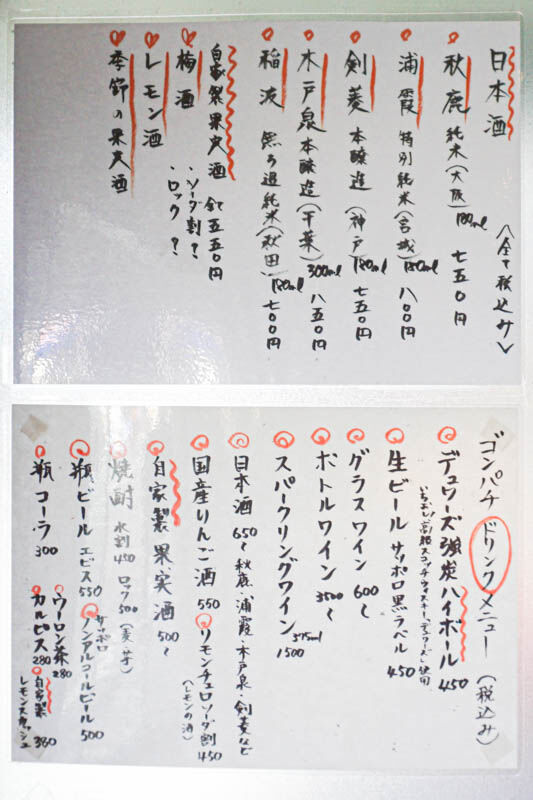 日本酒 〈全て税込み〉
秋鹿 純米(大阪) 180ml 七五〇円
浦霞 特別純米(宮城) 180ml 八〇〇円
剣菱 本醸造(神戸) 180ml 七五〇円
木戸泉 本醸造(千葉) 300ml 八五〇円
稲波 純米(秋田) 180ml 七〇〇円
自家製果実酒 全て五五〇円
梅酒 ・ソーダ割?
・ロック?
レモン酒
季節の果実酒
ゴンパチ ドリンクメニュー (税込み)
デュワーズ強炭ハイボール 450
いちおし!高級スコッチウイスキー、デュワーズ使用
生ビール サッポロ黒ラベル 450
グラスワイン 600〜
ボトルワイン 3500〜
スパークリングワイン 375ml 1500
日本酒 650〜 秋鹿・浦霞・木戸泉・剣菱など
国産りんご酒 550
リモンチェロソーダ割 450
(レモンの酒)
自家製 果実酒 500〜
焼酎 水割450 ロック500 (麦・芋)
瓶ビール エビス 550
サッポロ
ノンアルコールビール 500
瓶コーラ 300
ウーロン茶 280
カルピス 280
自家製
レモンスカッシュ 380